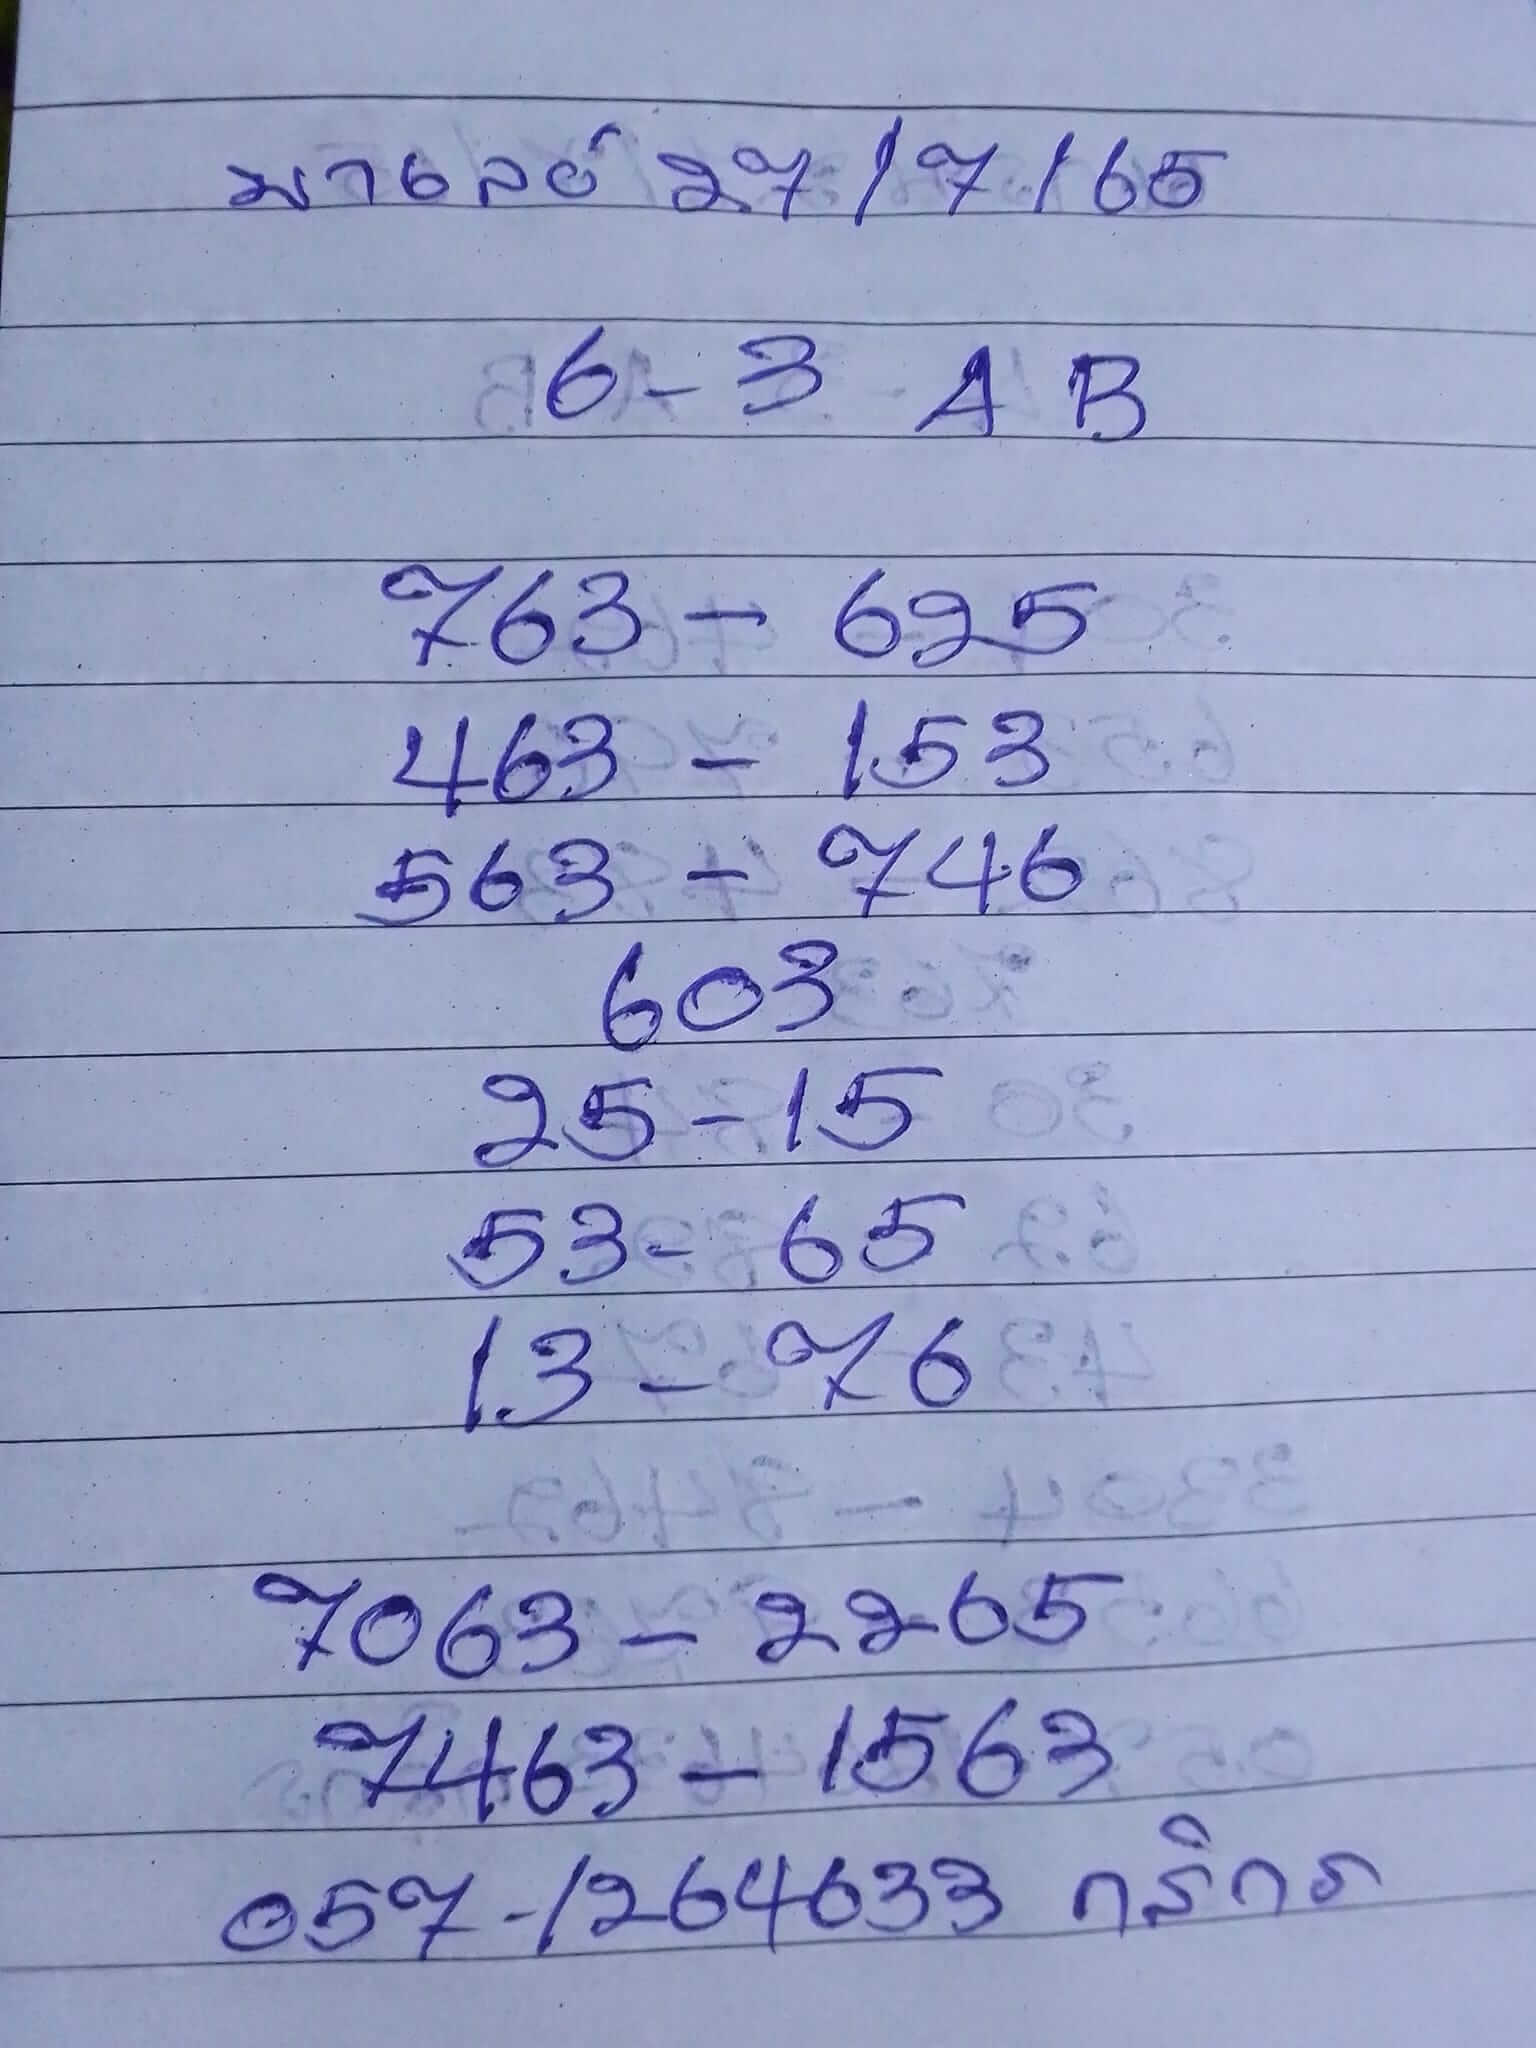 มาเลย์ 27/7/65
6-3 A B
763 - 625
463 - 153
563 - 746
603
25-15
53- 65
13-76
7063 - 2265
7463 - 1563
057-1264633 กสิกร